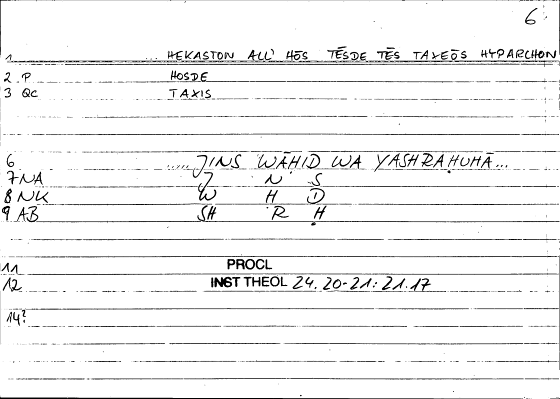 6
1 HEKASTON ALL' HŌS TĒSDE TĒS TAXEŌS HYPARCHON
2 P HOSDE
3 QC TAXIS
6 ..... JINS WĀḤID WA YASHRAḤUHĀ...
7 NA J N S
8 NK W Ḥ D
9 AB SH R Ḥ
11 PROCL
12 INST THEOL 24.20-21: 21.17
14?